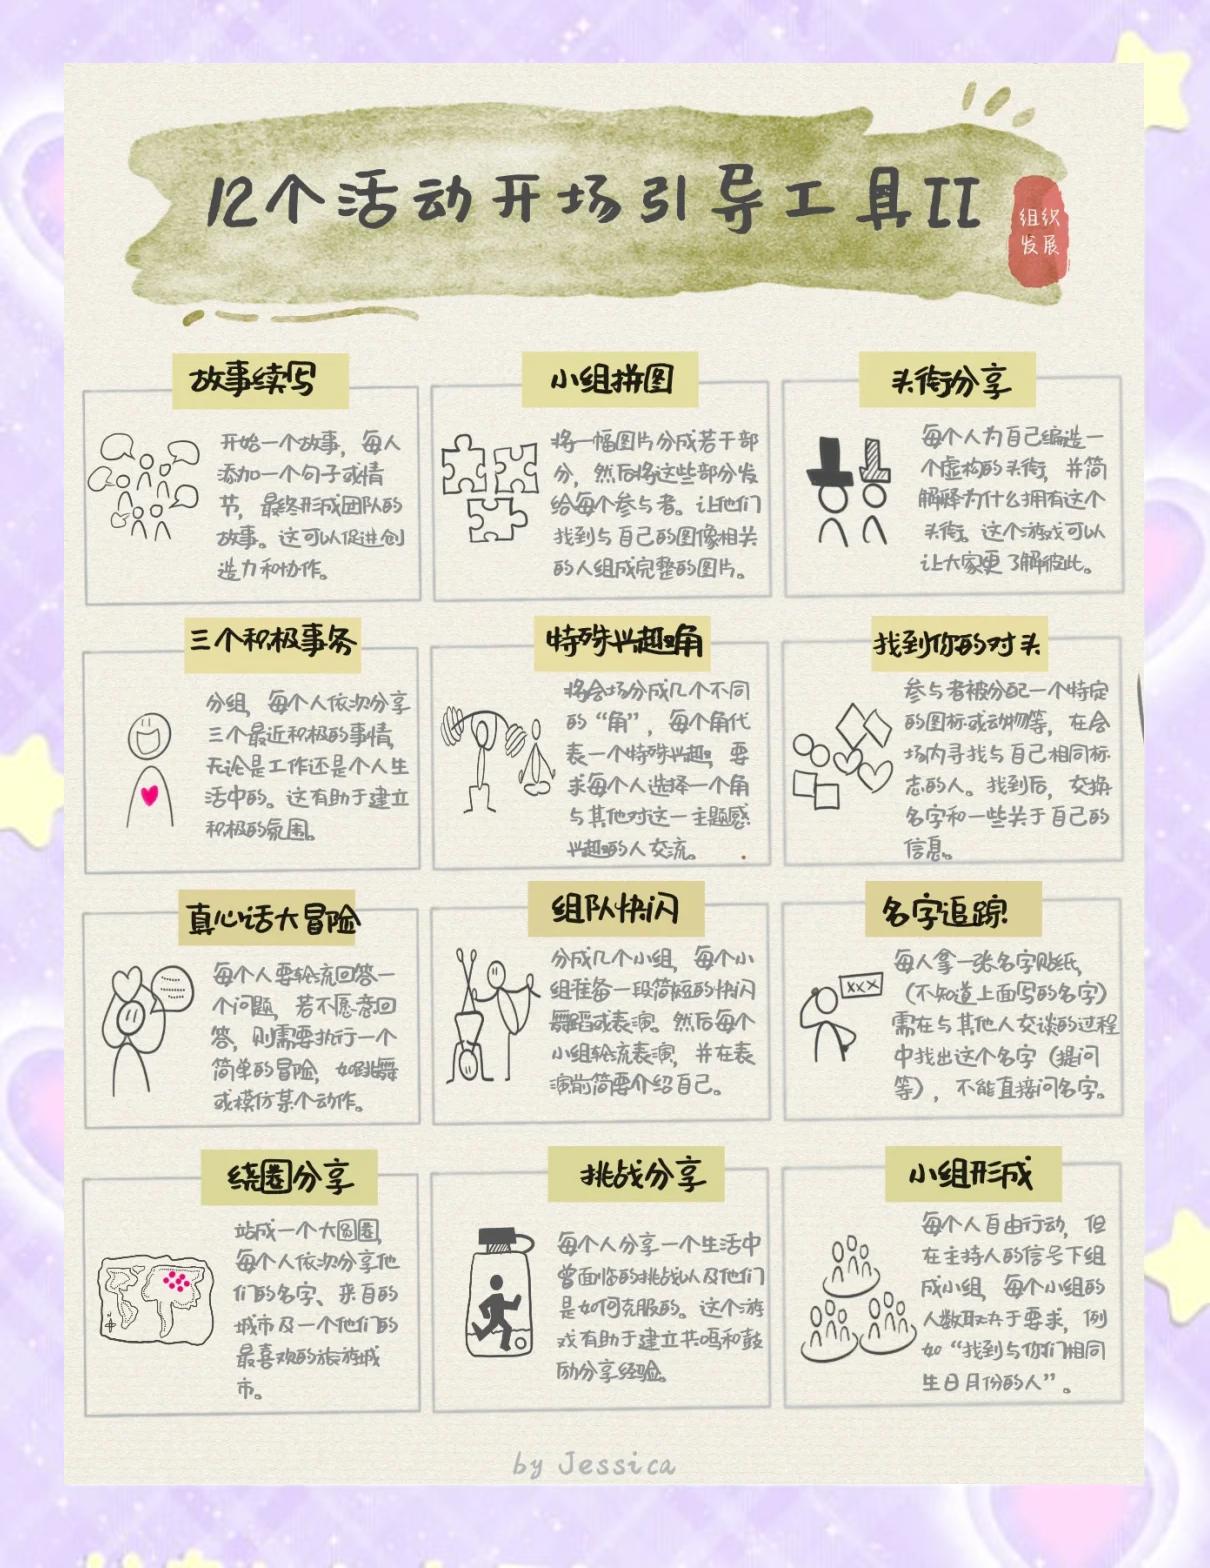 12个活动开场引导工具II
组织
发展
故事续写
开始一个故事，每人
添加一个句子或情
节，最终形成团队的
故事。这可以促进创
造力和协作。
小组拼图
将一幅图片分成若干部
分，然后将这些部分发
给每个参与者。让他们
找到与自己的图像相关
的人组成完整的图片。
头衔分享
每个人为自己编造一
个虚构的头衔，并简
解释为什么拥有这个
头衔。这个游戏可以
让大家更了解彼此。
三个积极事务
分组，每个人依次分享
三个最近积极的事情，
无论是工作还是个人生
活中的。这有助于建立
积极的氛围。
特殊兴趣角
将会场分成几个不同
的“角”，每个角代
表一个特殊兴趣，要
求每个人选择一个角
与其他对这一主题感
兴趣的人交流。
找到你的对头
参与者被分配一个特定
的图标或动物等，在会
场内寻找与自己相同标
志的人。找到后，交换
名字和一些关于自己的
信息。
真心话大冒险
每个人要轮流回答一
个问题，若不愿意回
答，则需要执行一个
简单的冒险，如跳舞
或模仿某个动作。
组队快闪
分成几个小组，每个小
组准备一段简短的快闪
舞蹈或表演。然后每个
小组轮流表演，并在表
演前简要介绍自己。
名字追踪
每人拿一张名字贴纸，
（不知道上面写的名字）
XXX
需在与其他人交谈的过程
中找出这个名字（提问
等），不能直接问名字。
绕圈分享
站成一个大圆圈，
每个人依次分享他
们的名字、来自的
城市及一个他们的
最喜欢的旅游城
市。
挑战分享
每个人分享一个生活中
曾面临的挑战以及他们
是如何克服的。这个游
戏有助于建立共鸣和鼓
励分享经验。
小组形成
每个人自由行动，但
在主持人的信号下组
成小组，每个小组的
人数取决于要求，例
如“找到与你们相同
生日月份的人”。
by Jessica